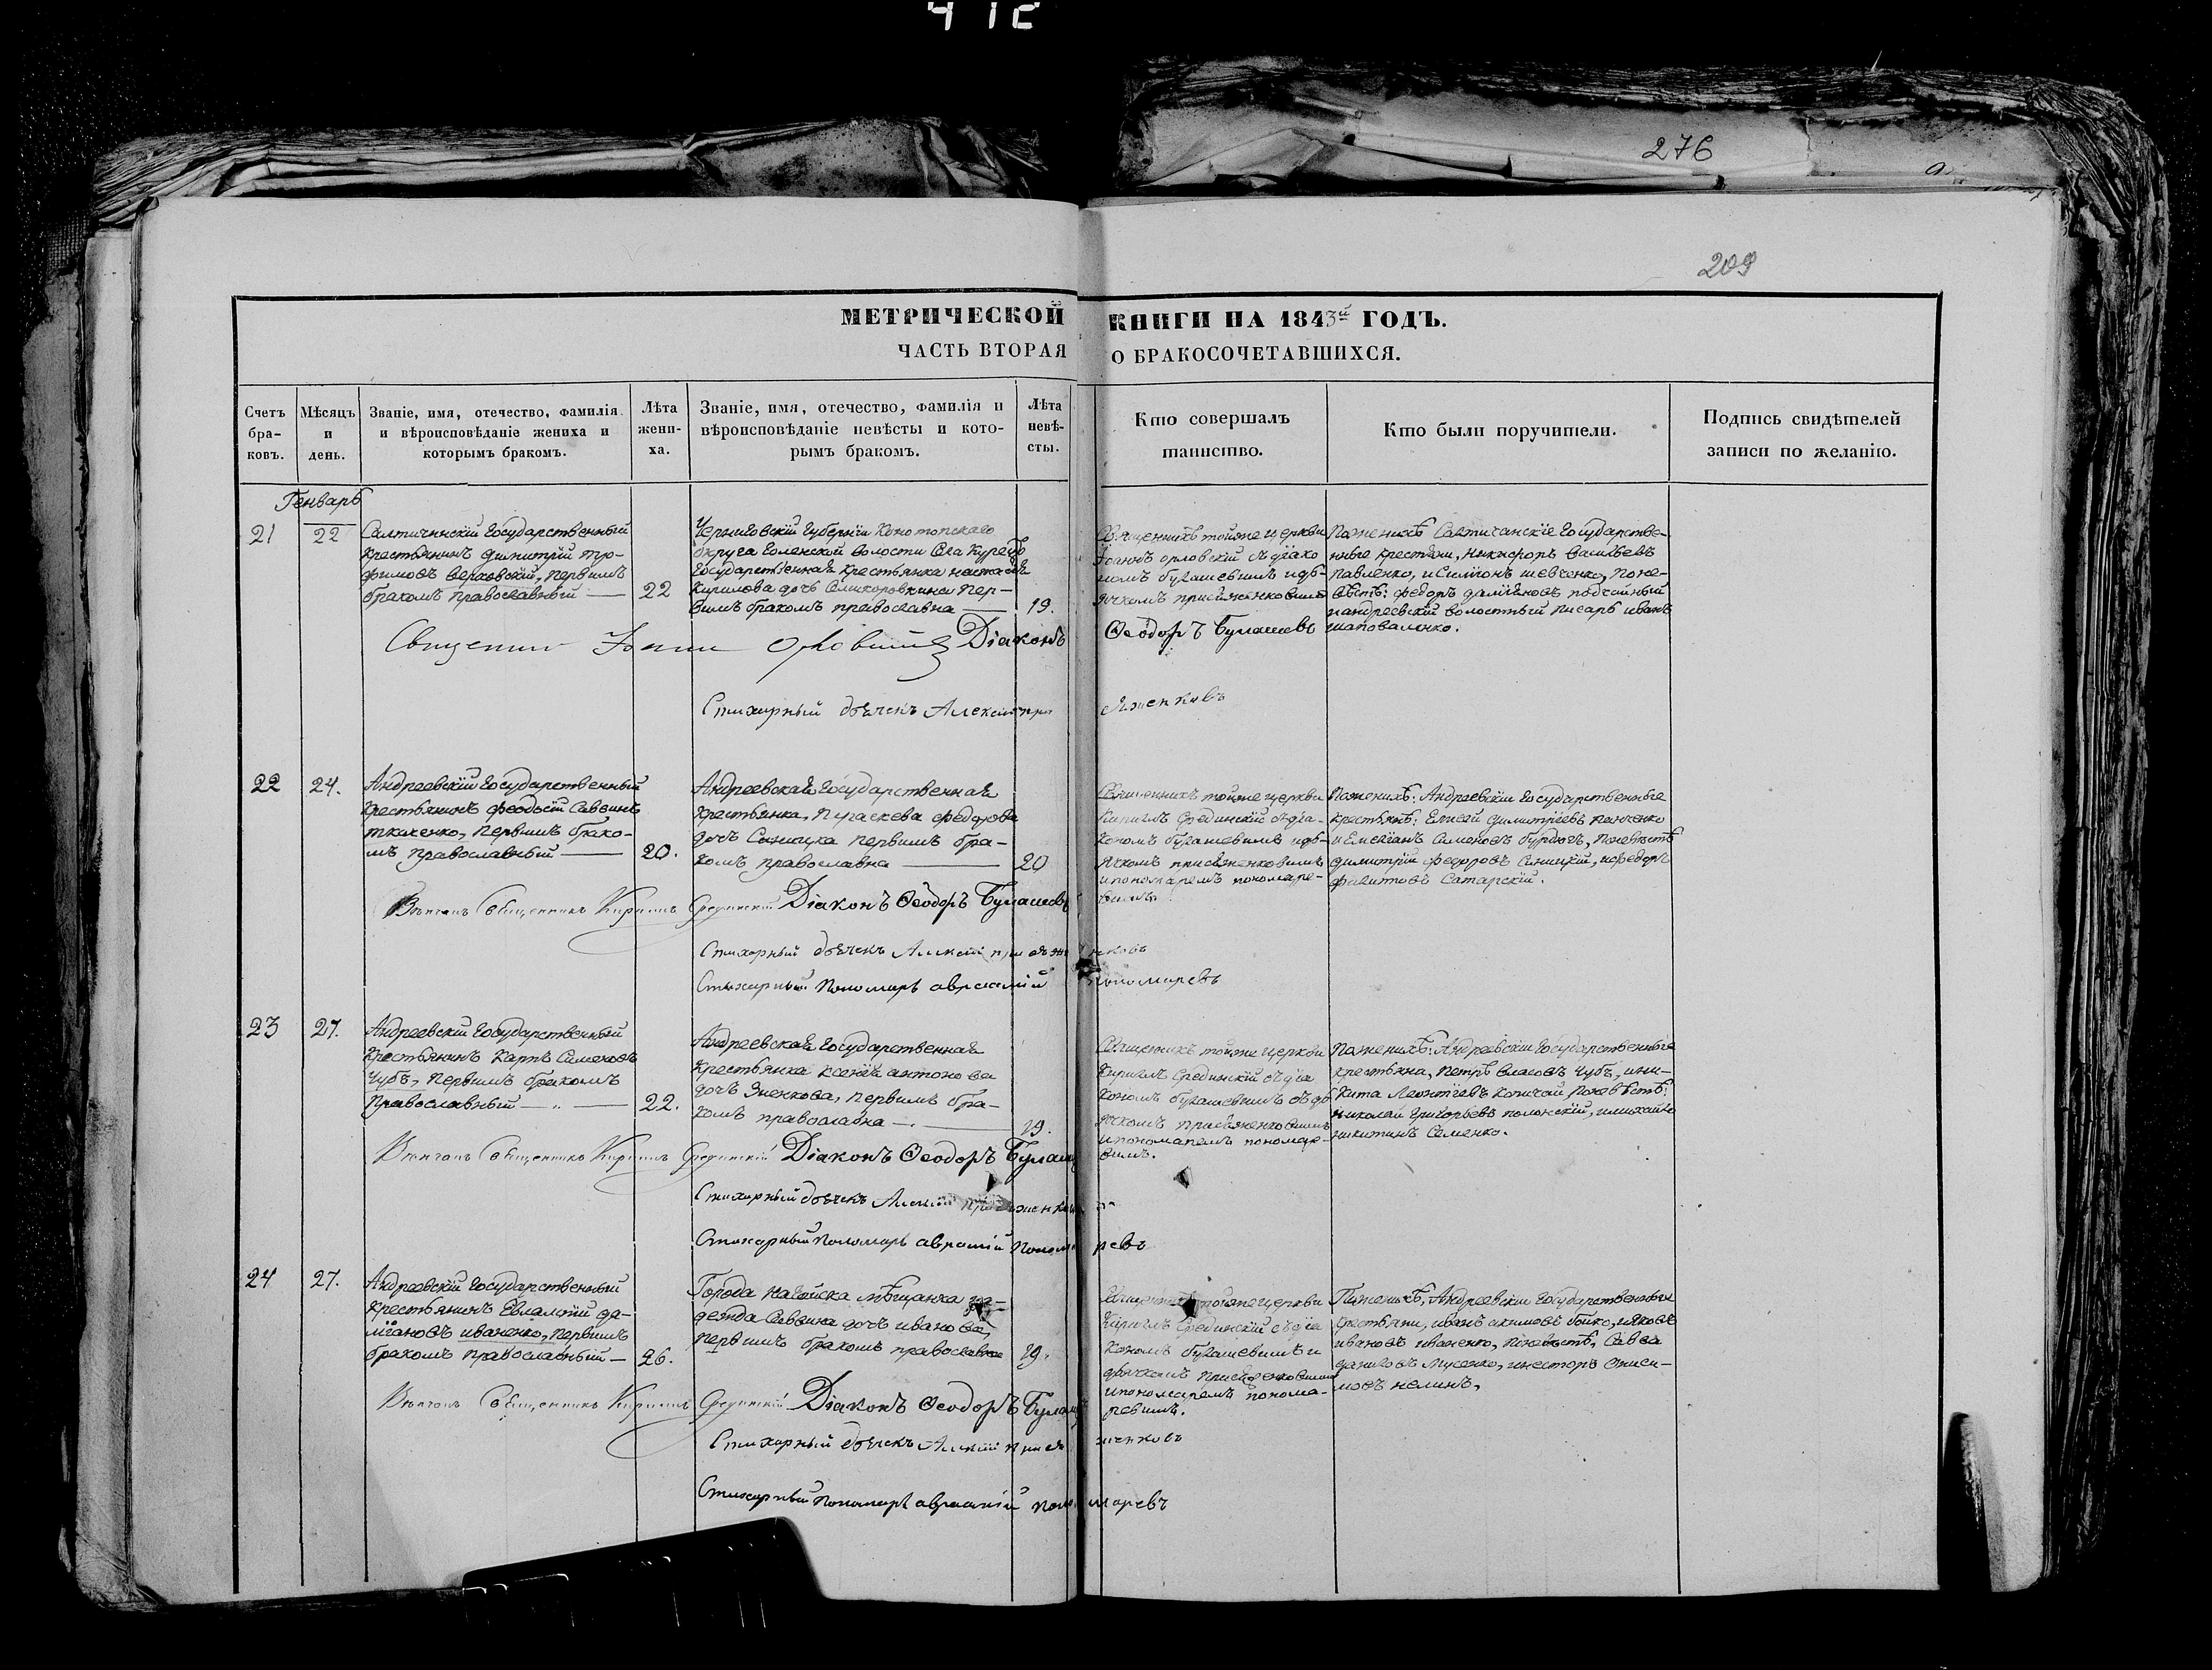 412
276
209
МЕТРИЧЕСКОЙ КНИГИ НА 1843й ГОДЪ.
ЧАСТЬ ВТОРАЯ О БРАКОСОЧЕТАВШИХСЯ.
Счетъ бра-ковъ.
Мѣсяцъ и день.
Званіе, имя, отечество, фамилія
и вѣроисповѣданіе жениха и
которымъ бракомъ.
Лѣта жени-ха.
Званіе, имя, отечество, фамилія и
вѣроисповѣданіе невѣсты и кото-
рымъ бракомъ.
Лѣта невѣ-сты.
Кто совершалъ
таинство.
Кто были поручители.
Подпись свидѣтелей
записи по желанію.
Генварь
21
22
Салтичинскій Государственный
крестьянинъ Димитрій тро-
фимовъ Верховскій, первимъ
бракомъ православный
22
Черниговскій Губерніи Конотопскаго
округа Голенской волости Села
Государственная крестьянка
Кирилова дочь пер-
вимъ бракомъ православна
19.
Священникъ тойже церкви
Іоаннъ орловскій съ діако
номъ булашевимъ идь-
ячкомъ присяженковимъ
Поженихѣ Салтичанскіе Государстве-
нные крестьяни, никифоръ васильевъ
павленко, и Симіонъ шевченко, поне-
вѣстѣ: федоръ даміяновъ
иандреевскій волостный писарь иванъ
шаповаленко.
Священник Іоанн Орловский Діаконъ Ѳеодоръ Булашевъ
Стихарный дьячекъ Алексій присяженковъ
22
24.
Андреевскій Государственный
крестьянинъ феодосій Саввинъ
ткаченко, первимъ брако-
мъ православный
20.
Андреевская Государственная
крестьянка, Параскева федорова
дочь Синицка первимъ бра-
комъ православна
20
Священникъ тойже церкви
Кирилъ Срединскій съ діа-
кономъ булашевимъ идь-
ячкомъ присяженковимъ
ипономаремъ пономаре-
вимъ.
Поженихѣ: Андреевскіи Государственные
крестьянѣ: Елисей Димитріевъ панченко
и Емеліянъ Семеновъ бурдюгъ, поневѣстѣ
димитрій федоровъ Синицкій, ифедоръ
филитовъ Сатарскій.
Вѣнчалъ Священникъ Кирилъ Срединскій Діаконъ Ѳеодоръ Булашевъ
Стихарный дьячекъ Алексій присяженковъ
Стихарный Пономарь аврамій пономаревъ
23
27.
Андреевскій Государственный
крестьянинъ Карпъ Семеновъ
Чубъ, первимъ бракомъ
православный
22.
Андреевская Государственная
крестьянка ксенія антонова
дочь Зненкова, первимъ бра-
комъ православна
19.
Священникъ тойже церкви
Кирилъ Срединскій съ діа
кономъ булашевимъ съ дь
ячкомъ присяженковимъ
ипономаремъ пономаре-
вимъ.
Поженихѣ: Андреевскіи Государственные
крестьяна, петръ власовъ Чубъ, ини-
кита Леонтіевъ Копичай, поневѣстѣ:
николай григорьевъ полонскій, имихайло
никитинъ Семенко.
Вѣнчалъ Священникъ Кирилъ Срединскій Діаконъ Ѳеодоръ Булашевъ
Стихарный дьячекъ Алексій присяженковъ
Стихарный Пономарь аврамій пономаревъ
24
27.
Андреевскій Государственный
крестьянинъ Евлампій да-
міановъ иваненко, первимъ
бракомъ православный
26.
Города Нагайска мѣщанка на-
дежда Саввина дочь иванова,
первимъ бракомъ православна
19.
Священникъ тойже церкви
Кирилъ Срединскій съ діа
кономъ булашевимъ и
дьячкомъ присяженковимъ
ипономаремъ понома-
ревимъ.
Поженихѣ, Андреевскіи Государственные
крестьяни, иванъ акимовъ бойко, ияковъ
ивановъ иваненко, поневѣстѣ, Савва
даниловъ Мусенко, инесторъ Аниси-
мовъ нелинъ.
Вѣнчалъ Священникъ Кирилъ Срединскій Діаконъ Ѳеодоръ Булашевъ
Стихарный дьячекъ Алексій присяженковъ
Стихарный Пономарь аврамій пономаревъ